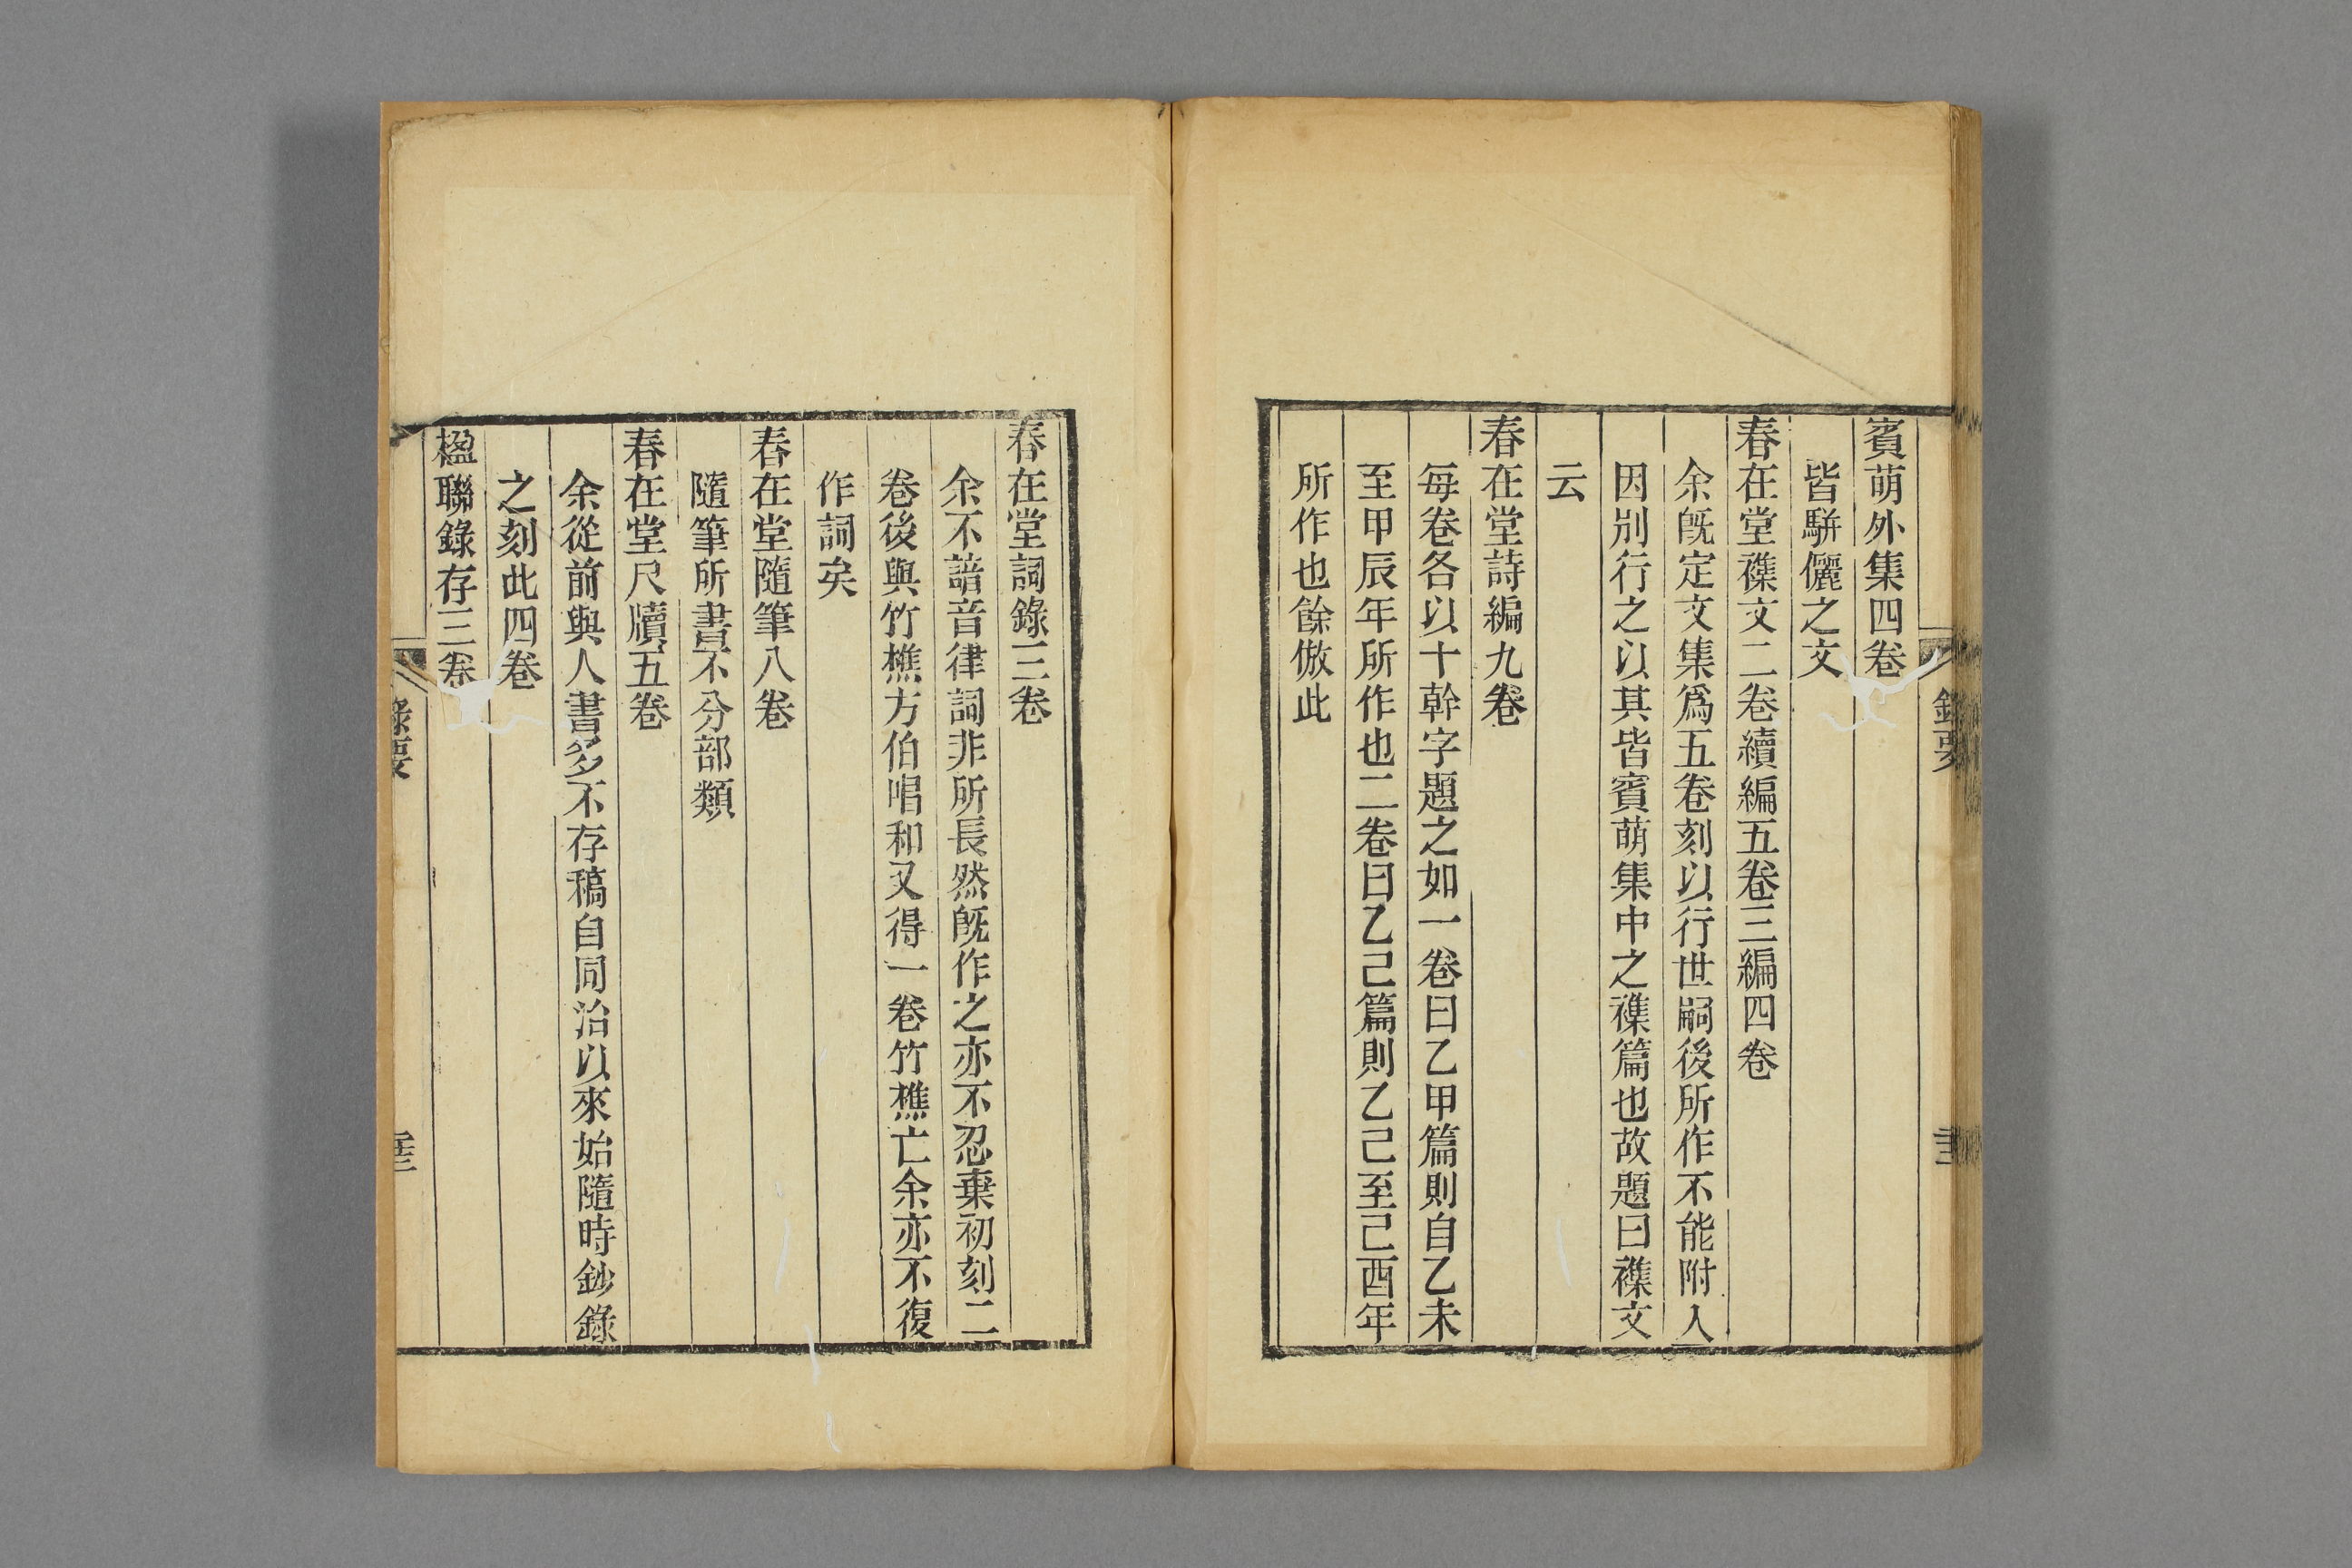 賓萌外集四卷
皆駢儷之文
春在堂襍文二卷續編五卷三編四卷
余旣定文集爲五卷刻以行世嗣後所作不能附入
因別行之以其皆賓萌集中之襍篇也故題曰襍文
云
春在堂詩編九卷
每卷各以十幹字題之如一卷曰乙甲篇則自乙未
至甲辰年所作也二卷曰乙己篇則乙己至己酉年
所作也餘倣此
春在堂詞錄三卷
余不諳音律詞非所長然旣作之亦不忍棄初刻二
卷後與竹樵方伯唱和又得一卷竹樵亡余亦不復
作詞矣
春在堂隨筆八卷
隨筆所書不分部類
春在堂尺牘五卷
余從前與人書多不存稿自同治以來始隨時鈔錄
之刻此四卷
楹聯錄存三卷
錄要